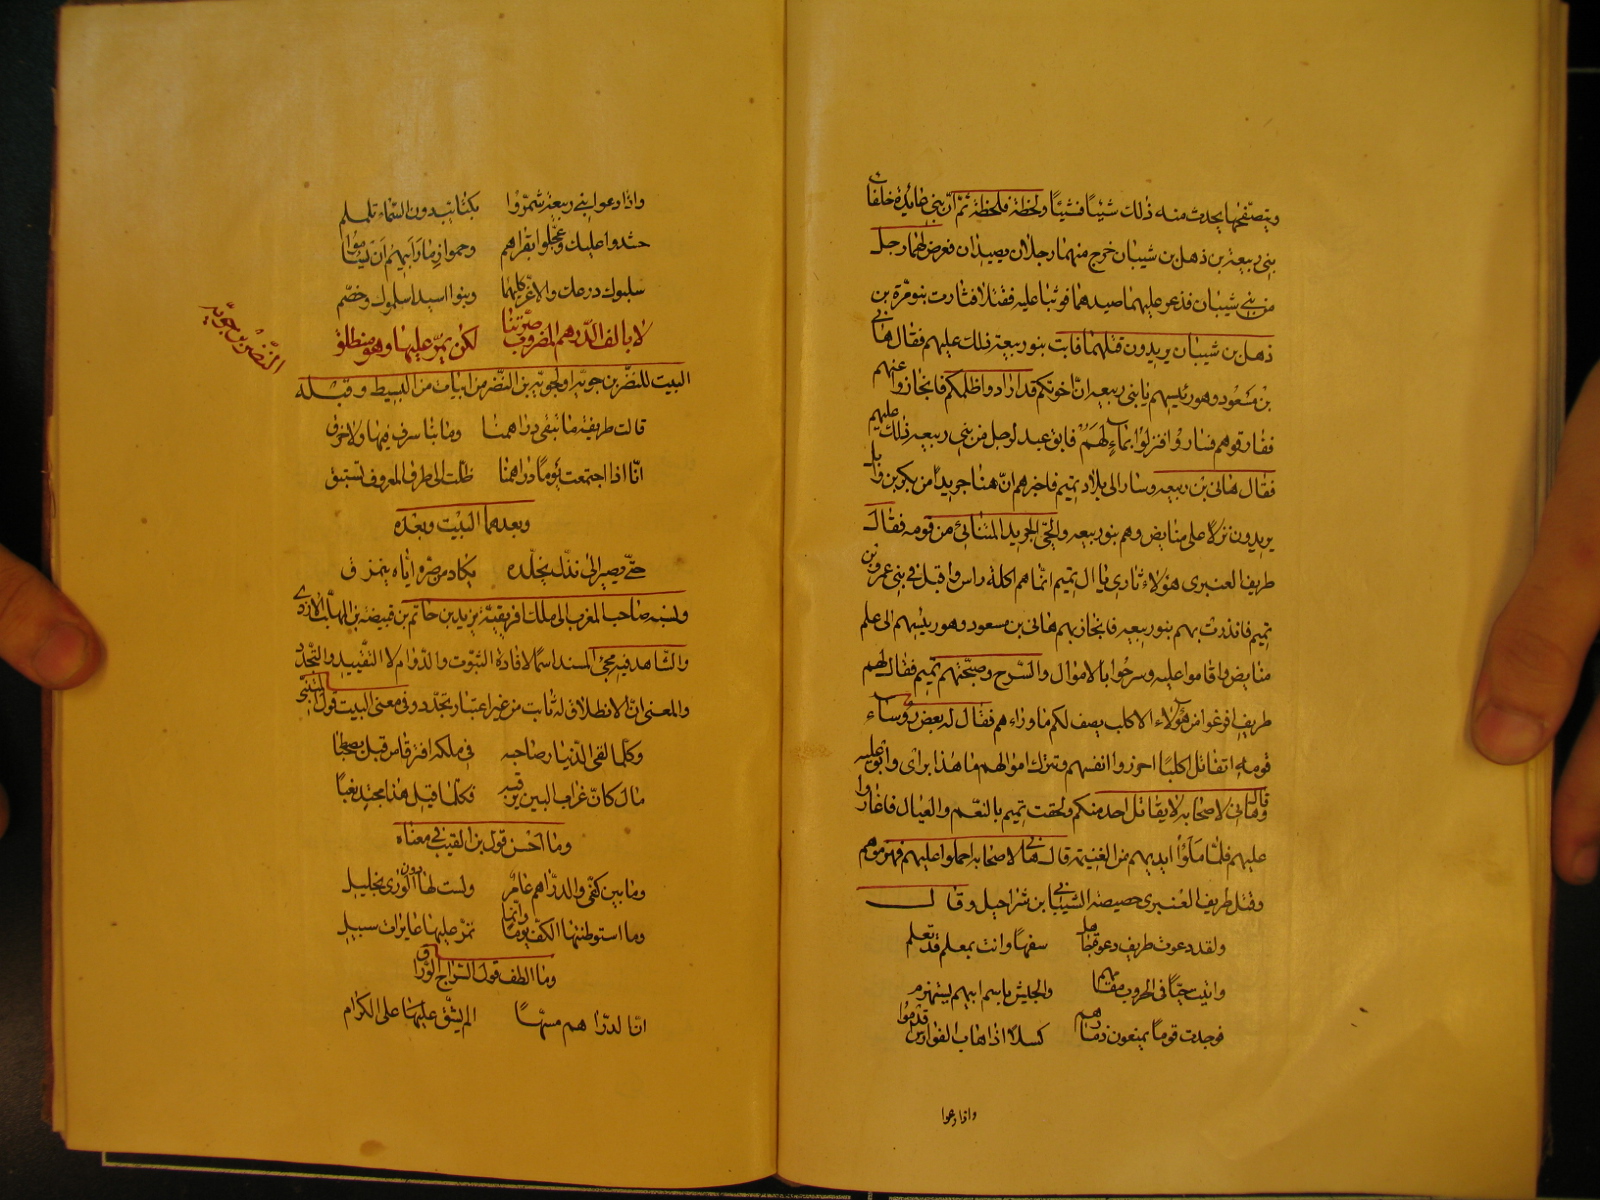 ويتصفحها يحدث منه ذلك شيئا فشيئا ولحظة فلحظة ثم ان بني عائدة خلفاء
بني ربيعة بن ذهل بن شيبان خرج منهما رجلان يصيدان فعرض لهما رجل
من بني شيبان فذعر عليهما صيدهما فوثبا عليه فقتلاه فثارت بنو مرة بن
ذهل بن شيبان يريدون قتلهما فابت بنو ربيعة ذلك عليهم فقال هانئ
بن مسعود وهو رئيسهم يا بني ربيعه ان اخوتكم قد ارادوا ظلمكم فانحازوا عنهم
ففارقوهم فساروا فنزلوا بماء لهم فابق عبد لرجل من بني ربيعه ذلك عليهم
فقال هانئ بن ربيعه وسار الى بلاد تميم فاخبرهم ان هنا جريدا من بكر بن وايل
يريدون نزلا على مبايض وهم بنو ربيعه والحي الجريد المتنائي من قومه فقال
طريف العنبري هؤلاء ثاري يا ال تميم انما هم اكلة راس واقبل في بني عمرو بن
تميم فانذرت بهم بنو ربيعه فانحاز بهم هانئ بن مسعود وهو رئيسهم الى علم
مبايض واقاموا عليه وسرحوا بالاموال والسرح وصبحتهم تميم فقال لهم
طريف افرغوا من هؤلاء الاكلب يصف لكم ما وراءهم فقال له بعض رؤساء
قومه انقاتل اكلبا احرزوا انفسهم ونترك اموالهم ما هذا براي وابوا عليه
وقال هانئ لاصحابه لا يقاتل احد منكم ولحقت تميم بالنعم والعيال فاغاروا
عليهم فلما ملؤا ايديهم من الغنيمة قال هانئ لاصحابه احملوا عليهم فهزموهم
وقتل طريف العنبري حصيصة الشيباني بن شراحيل وقال
ولقد دعوت طريف دعوة جاهل سفها وانت بمعلم قد تعلم
واتيت حيا في الحروب مقامهم والجيش باسم ابيهم يستهزم
فوجدت قوما يمنعون ذمارهم كسلا اذا هاب الفوارس قدموا
واذا دعوا
واذا دعوا بني ربيعة شمروا بكتايب دون السماء تلملم
حشدوا عليك وعجلوا بقراهم وحموا ذمار ابيهم ان يساموا
سلبوك درعك والاغر كلهما وبنوا اسيد اسلموك وخضم
لا يالف الدرهم المضروب صرتنا لكن يمر عليها وهو منطلق
النضر بن جوية
البيت للنضر بن جوية او لجوية بن النضر من ابيات من البسيط وقبله
قالت طريفة ما تبقى دراهمنا وما بنا سرف فيها ولا خرق
انا اذا اجتمعت يوما دراهمنا ظلت الى طرق المعروف تستبق
وبعدهما البيت وبعده
حتى يصير الى نذل يخلده يكاد من صره اياه ينمزق
ونسبه صاحب المغرب الى ملك افريقية يزيد بن حاتم بن قبيصة بن المهلب الازدي
والشاهد فيه مجئ المسند اسما لافادة الثبوت والدوام لا التقييد والتجدد
والمعنى ان الانطلاق له ثابت من غير اعتبار تجدد وفي معنى البيت قول المتنبي
وكلما لقي الدنيار صاحبه في ملكه افترقا من قبل يصطحبا
مال كان غراب البين يرقبه فكلما قيل هذا مجتد نعبا
وما احسن قول بن النقيب في معناه
وما بين كفي والدراهم عامر ولست لها دون الورى بخليل
وما استوطنتها الكف يوما وانما تمر عليها عابرات سبيل
وما الطف قول السراج الوراق
انا لدراهم مستها الم يشق عليها على الكرام